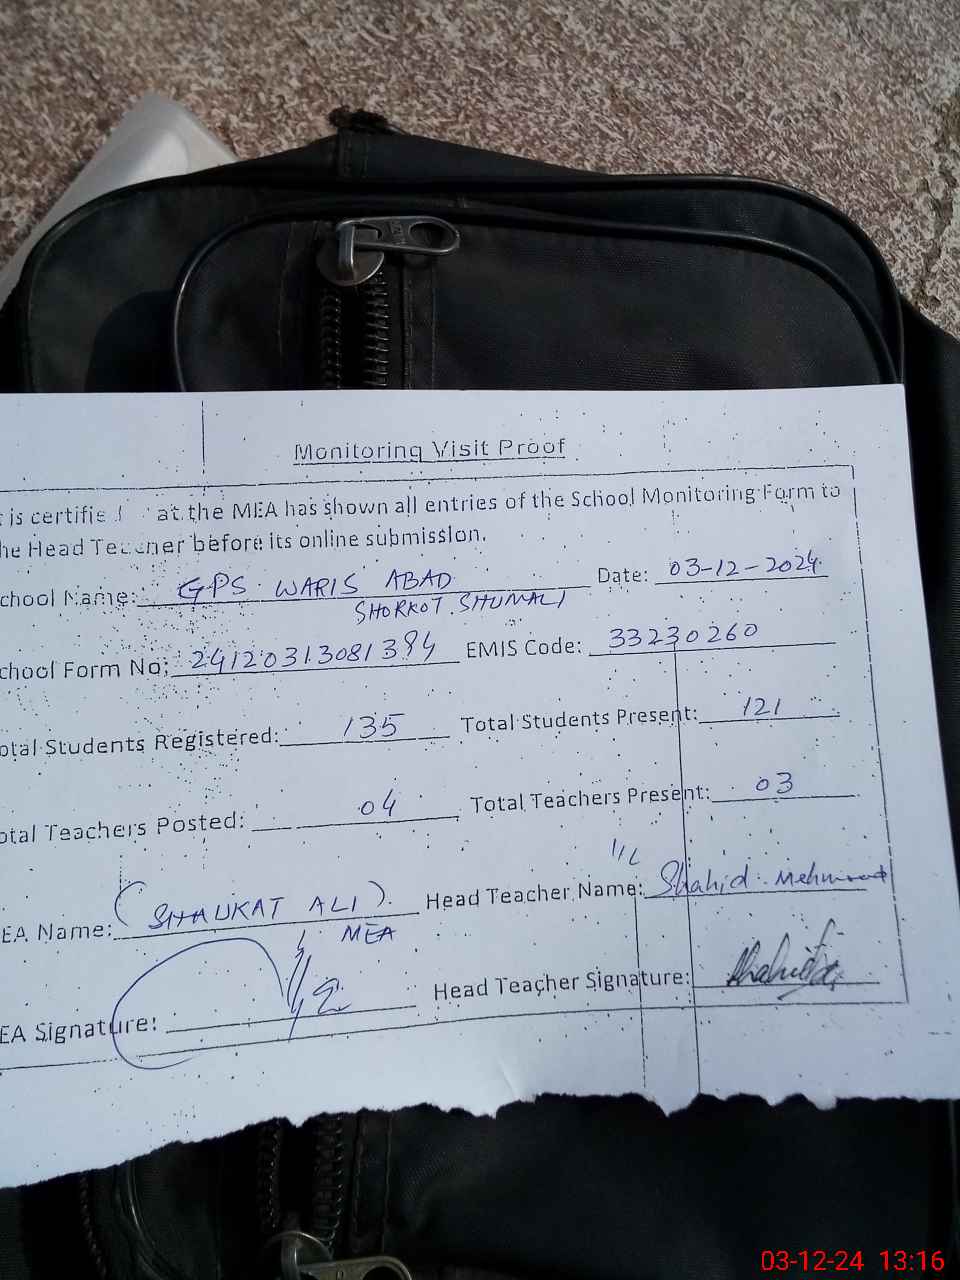 Monitoring Visit Proof
is certified at the MEA has shown all entries of the School Monitoring Form to
he Head Teacher before its online submission.
chool Name: GPS WARIS ABAD Date: 03-12-2024
SHORKOT SHUMALI
chool Form No: 24120313081384 EMIS Code: 33230260
otal Students Registered: 135 Total Students Present: 121
otal Teachers Posted: 04 Total Teachers Present: 03
EA Name: (SHAUKAT ALI). Head Teacher Name: Shahid Mehmood
MEA
EA Signature: Head Teacher Signature:
03-12-24 13:16